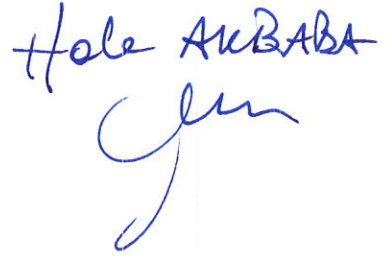 Hale AKBABA